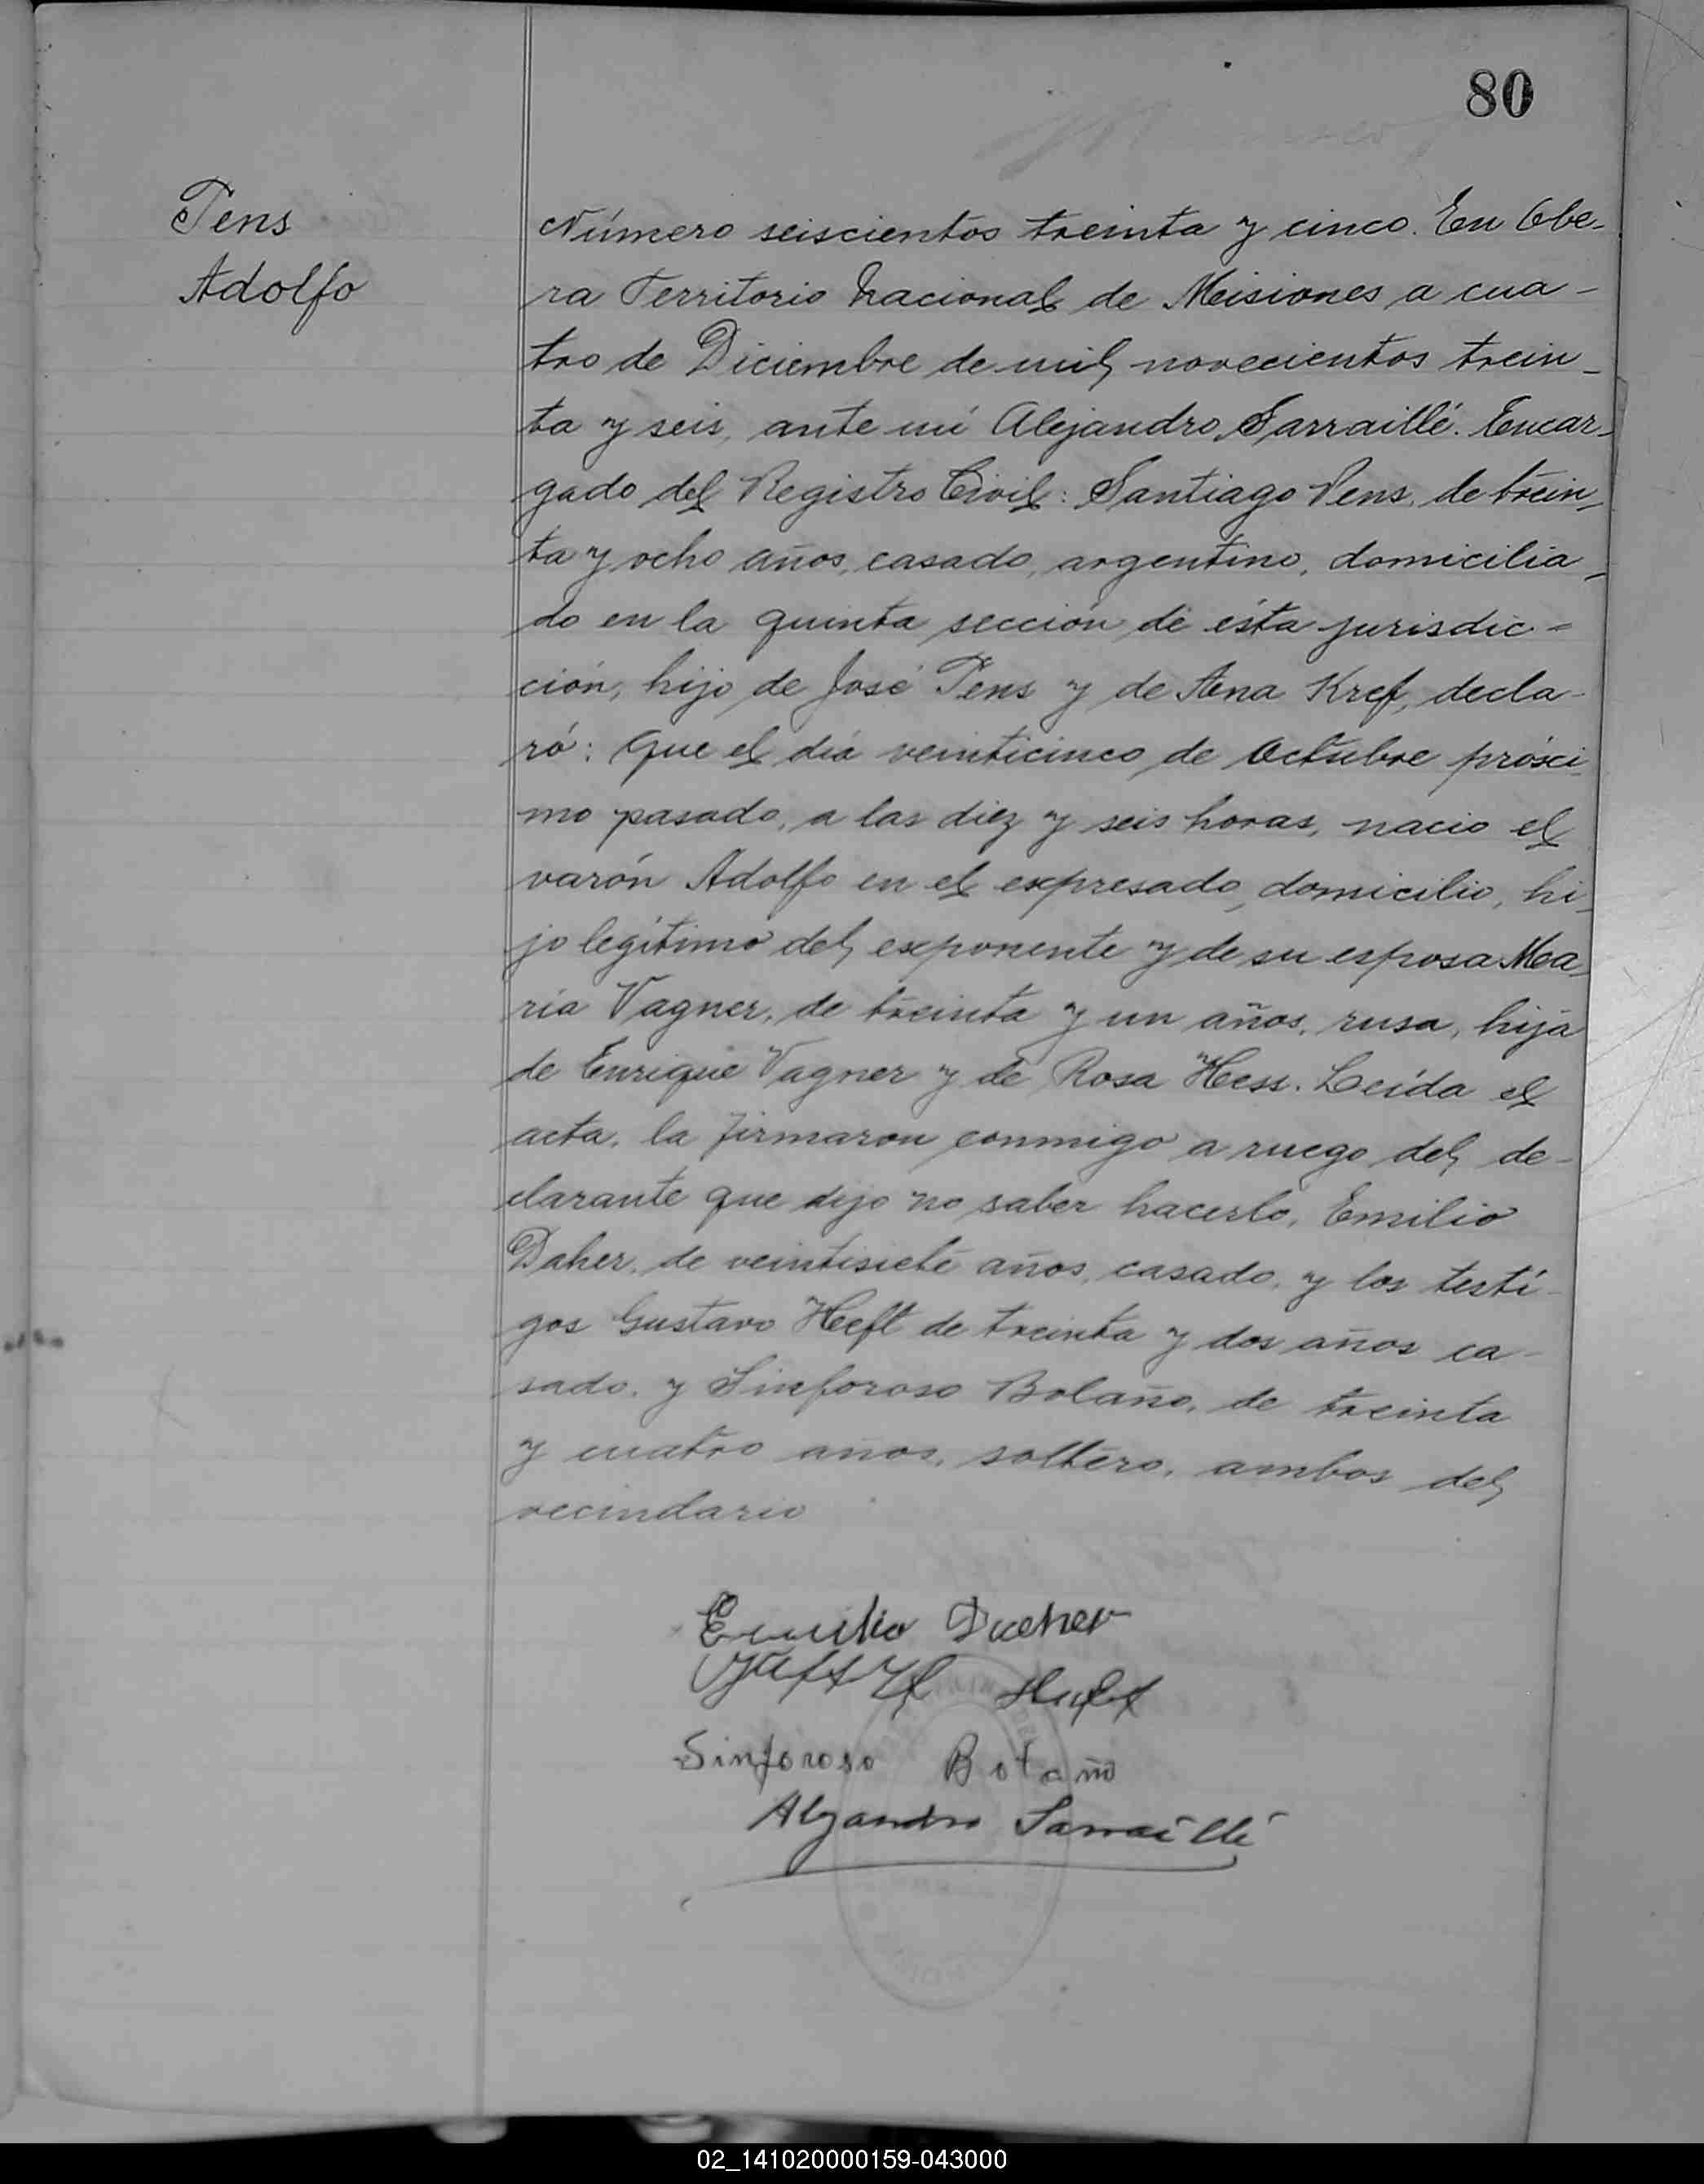 80
Pens
Adolfo
Número seiscientos treinta y cinco. En Obe-
ra Territorio Nacional de Misiones a cua-
tro de Diciembre de mil novecientos trein-
ta y seis, ante mi Alejandro Sarraillé. Encar-
gado del Registro Civil: Santiago Pens, de trein-
ta y ocho años, casado, argentino, domicilia-
do en la quinta sección de ésta jurisdic-
ción, hijo de José Pens y de Ana Kref, decla-
ró: Que el día veinticinco de Octubre prósci-
mo pasado, a las diez y seis horas, nacio el
varón Adolfo en el expresado domicilio, hi-
jo legítimo del exponente y de su esposa Ma-
ría Vagner, de treinta y un años, rusa, hija
de Enrique Vagner y de Rosa Hess. Leída el
acta, la firmaron conmigo a ruego del de-
clarante que dijo no saber hacerlo, Emilio
Daher, de veintisiete años, casado, y los testi-
gos Gustavo Heft de treinta y dos años ca-
sado, y Sinforoso Bolaño, de treinta
y cuatro años, soltero, ambos del
vecindario
Emilio Daher
Sinforoso Bolaño
Alejandro Sarraillé
02_141020000159-043000